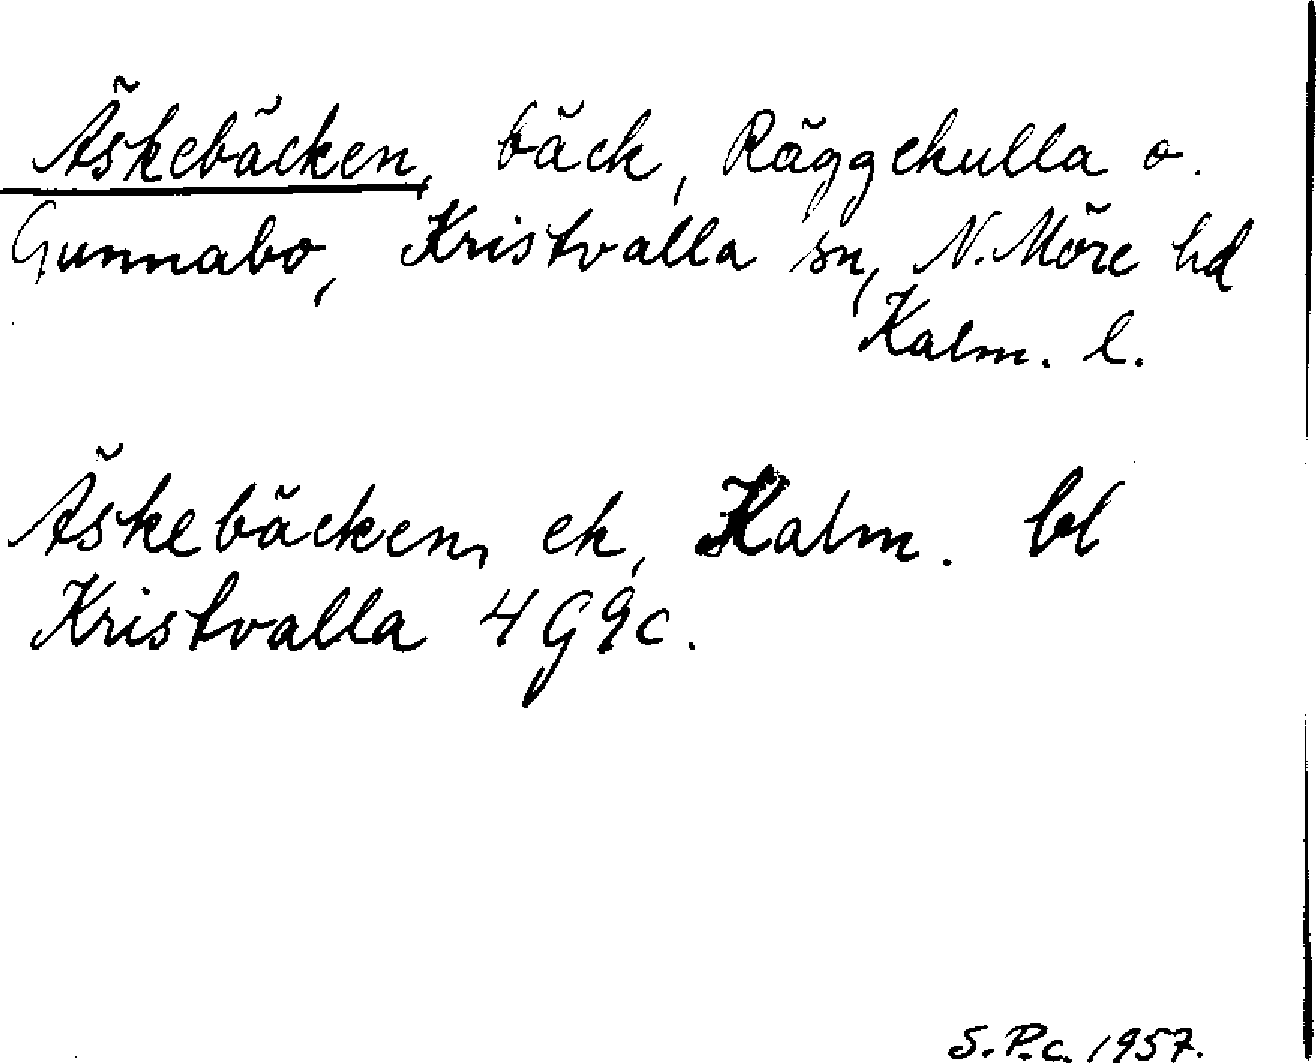 Äskebäcken, bäck, Räggekulla o.
Gunnabo, Kristvalla sn, N. Möre hd
Kalm. l.
Äskebäcken, ek, Kalm. bl
Kristvalla 4G9c.
S.P.c. 1957.